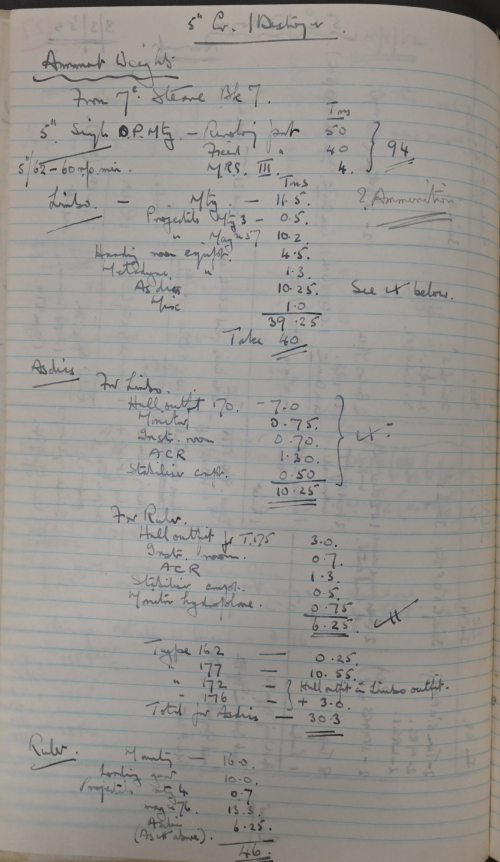 5" Cr. / Destroyer.
Armament Weights
From 7th. Steane Bk 7.
Tons
5" Single D.P. Mtg - Revolving part 50
Fixed " 40 94
5"/62 - 60 r.p.min. M.R.S. III. 4.
Tons
Limbo. - Mtg - 11.5. ? Ammunition
Projectiles Mtg 3 - 0.5.
" Mag 57 10.2.
Handing room equipt. 4.5.
Metadyne " 1.3.
Asdics 10.25 See below.
Misc 1.0
39.25
Take 40
Asdics
For Limbo.
Hull outfit 170. - 7.0
Monitor 0.75.
Instr. room 0.70.
ACR 1.30.
Stabiliser compt. 0.50
10.25
For Ruler.
Hull outfit for T.175 3.0.
Instr. room. 0.7.
ACR 1.3.
Stabiliser compt. 0.5.
Monitor hydroplane. 0.75
6.25.
Type 162 - 0.25.
" 177 - 10.55.
" 172 - Hull outfit in Limbo outfit.
" 176 - + 3.0.
Total for Asdics - 30.3
Ruler. Mounting - 16.0.
Loading gear 10.0.
Projectiles 4 0.7
mag 76.
Asdic 6.25.
(As above).
46.